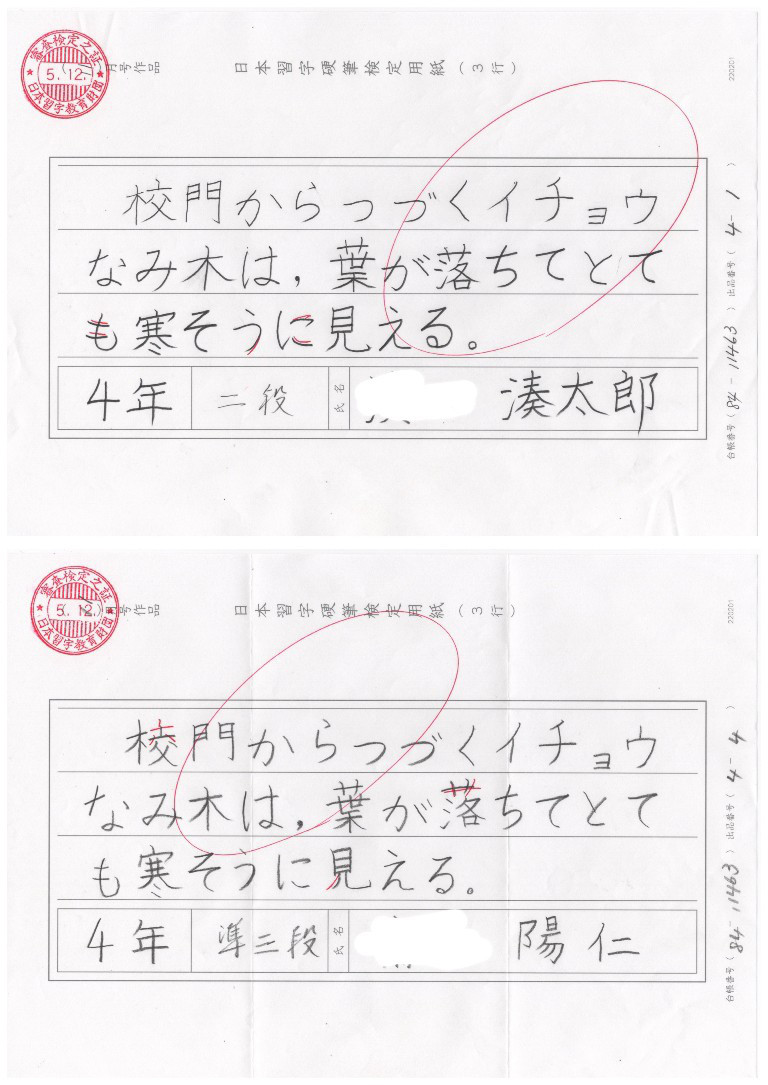 審査検定之証
5.12.
日本習字教育財団
月号作品
日本習字硬筆検定用紙（3行）
220201
校門からつづくイチョウ
なみ木は，葉が落ちてとて
も寒そうに見える。
4年 二段 氏名 湊太郎
台帳番号（84-11463）出品番号（4-1）
審査検定之証
5.12.
日本習字教育財団
月号作品
日本習字硬筆検定用紙（3行）
220201
校門からつづくイチョウ
なみ木は，葉が落ちてとて
も寒そうに見える。
4年 準三段 氏名 陽仁
台帳番号（84-11463）出品番号（4-4）